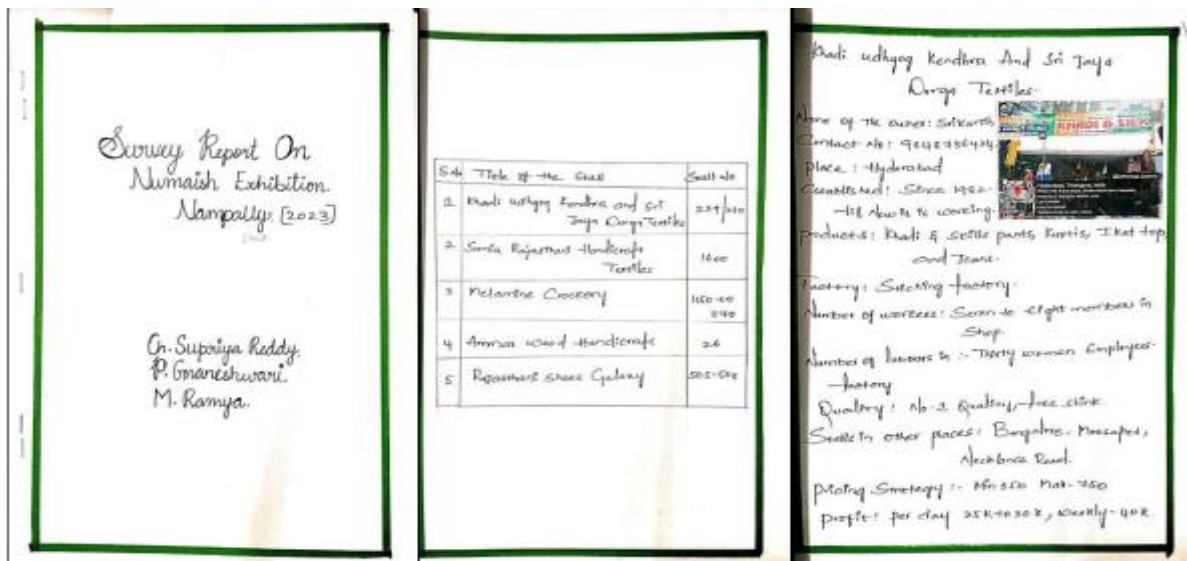 Survey Report On
Numaish Exhibition.
Nampally. [2023]
Ch. Supriya Reddy.
P. Gnaneshwari.
M. Ramya.
S.no Title of the Stall Stall no
1 Khadi udhyog Kendhra and Sri
Jaya Durga Textiles
2 Sonia Rajasthan Handicrafts
Textiles
1600
3 Melamine Crockery
4 Amman Wood Handicrafts 26
5 Rajasthani Shoes Galaxy
Khadi udhyog Kendhra And Sri Jaya
Durga Textiles.
Name of the owner: Srikanth
Contact No:
KHADI & SILK
Place: Hyderabad
Established: Since 1982-
till Now it is working.
products: Khadi & pants, Kurtis, Ikat top,
and Jeans.
Factory: Stitching factory.
Number of workers: Seven to eight members in
Shop.
Number of labours in :- Thirty women Employees
factory
Quality: No-1 Quality, free
Stalls in other places: Banglore,
Necklace Road.
pricing Strategy :- Min 350 Max-750
profit: per day 25K to 30K, weekly-40K.